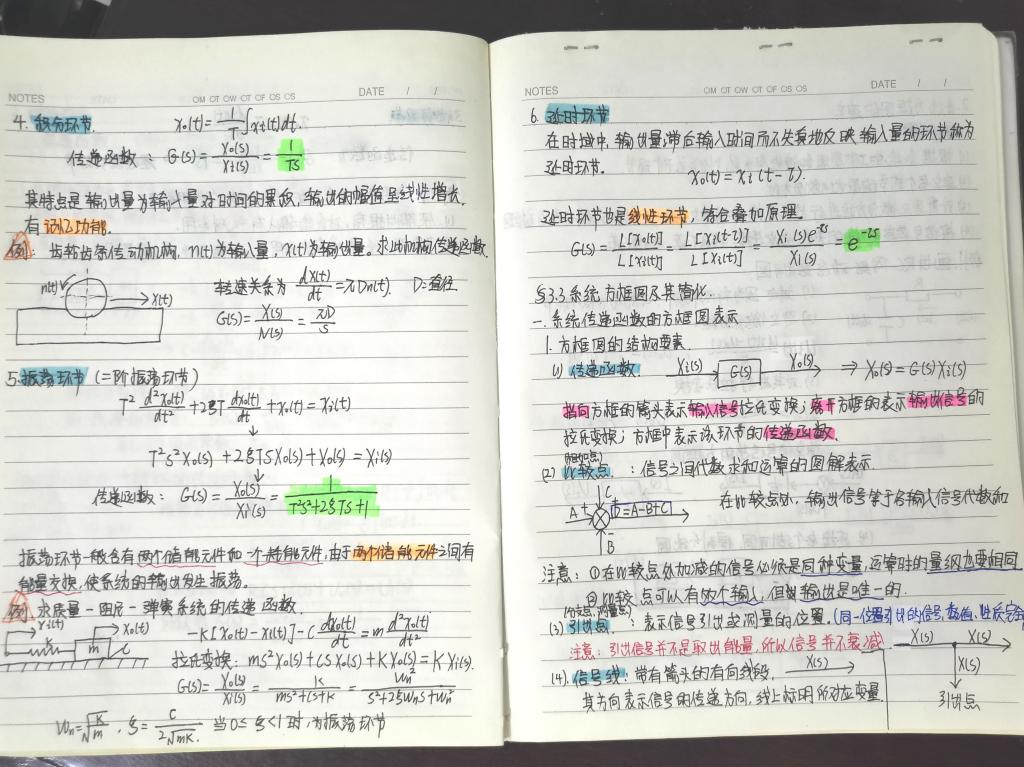 NOTES
OM OT OW OT OF OS OS
DATE / /
4. 积分环节. xo(t)=1/T∫xi(t)dt.
传递函数 G(s)=Xo(s)/Xi(s)=1/Ts
其特点是输出量为输入量对时间的累积,输出的幅值呈线性增长.
有记忆功能.
例: 齿轮齿条传动机构. n(t)为输入量,x(t)为输出量。求此机构传递函数.
n(t) X(t)
转速关系为 dx(t)/dt=πDn(t). D=直径
G(s)=X(s)/N(s)=πD/s
5.振荡环节(二阶振荡环节)
T² d²xo(t)/dt²+2ξT dxo(t)/dt+xo(t)=xi(t)
↓
T²s²Xo(s)+2ξTsXo(s)+Xo(s)=Xi(s)
↓
传递函数: G(s)=Xo(s)/Xi(s)=1/T²s²+2ξTs+1
振荡环节一般含有两个储能元件和一个耗能元件,由于两个储能元件之间有
能量交换,使系统的输出发生振荡。
例 求质量-阻尼-弹簧系统的传递函数.
xi(t) xo(t) m c
-K[xo(t)-xi(t)]-C dxo(t)/dt=m d²xo(t)/dt²
拉氏变换: ms²Xo(s)+CsXo(s)+KXo(s)=KXi(s).
G(s)=Xo(s)/Xi(s)=K/ms²+Cs+K=Wn²/s²+2ξWns+Wn²
Wn=√K/m, ξ=C/2√mK. 当0≤ξ<1时,为振荡环节
NOTES
OM OT OW OT OF OS OS
DATE / /
6. 延时环节
在时域中,输出量滞后输入时间而不失真地反映输入量的环节称为
延时环节.
xo(t)=xi(t-τ).
延时环节也是线性环节,符合叠加原理.
G(s)=L[xo(t)]/L[xi(t)]=L[xi(t-τ)]/L[xi(t)]=Xi(s)e^-τs/Xi(s)=e^-τs
§3.3系统方框图及其简化.
一.系统传递函数的方框图表示
1.方框图的结构要素.
(1) 传递函数. Xi(s) G(s) Xo(s) ⇒ Xo(s)=G(s)Xi(s)
指向方框的箭头表示输入信号拉氏变换;离开方框的表示输出信号的
拉氏变换;方框中表示该环节的传递函数.
(相加点)
(2) 比较点 :信号之间代数求和运算的图解表示.
A+ C+ -B D=A-B+C 在比较点处,输出信号等于各输入信号代数和
注意: ①在比较点处加减的信号必须是同种变量,运算时的量纲也要相同
②比较点可以有两个输入,但其输出是唯一的.
(分支点,测量点)
(3) 引出点 :表示信号引出或测量的位置.(同一位置引出的信号,数值,性质完全
注意:引出信号并不是取出能量,所以信号并不衰减. X(s) X(s)
X(s)
引出点
(4).信号线:带有箭头的有向线段. X(s)
其方向表示信号的传递方向,线上标明所对应变量.